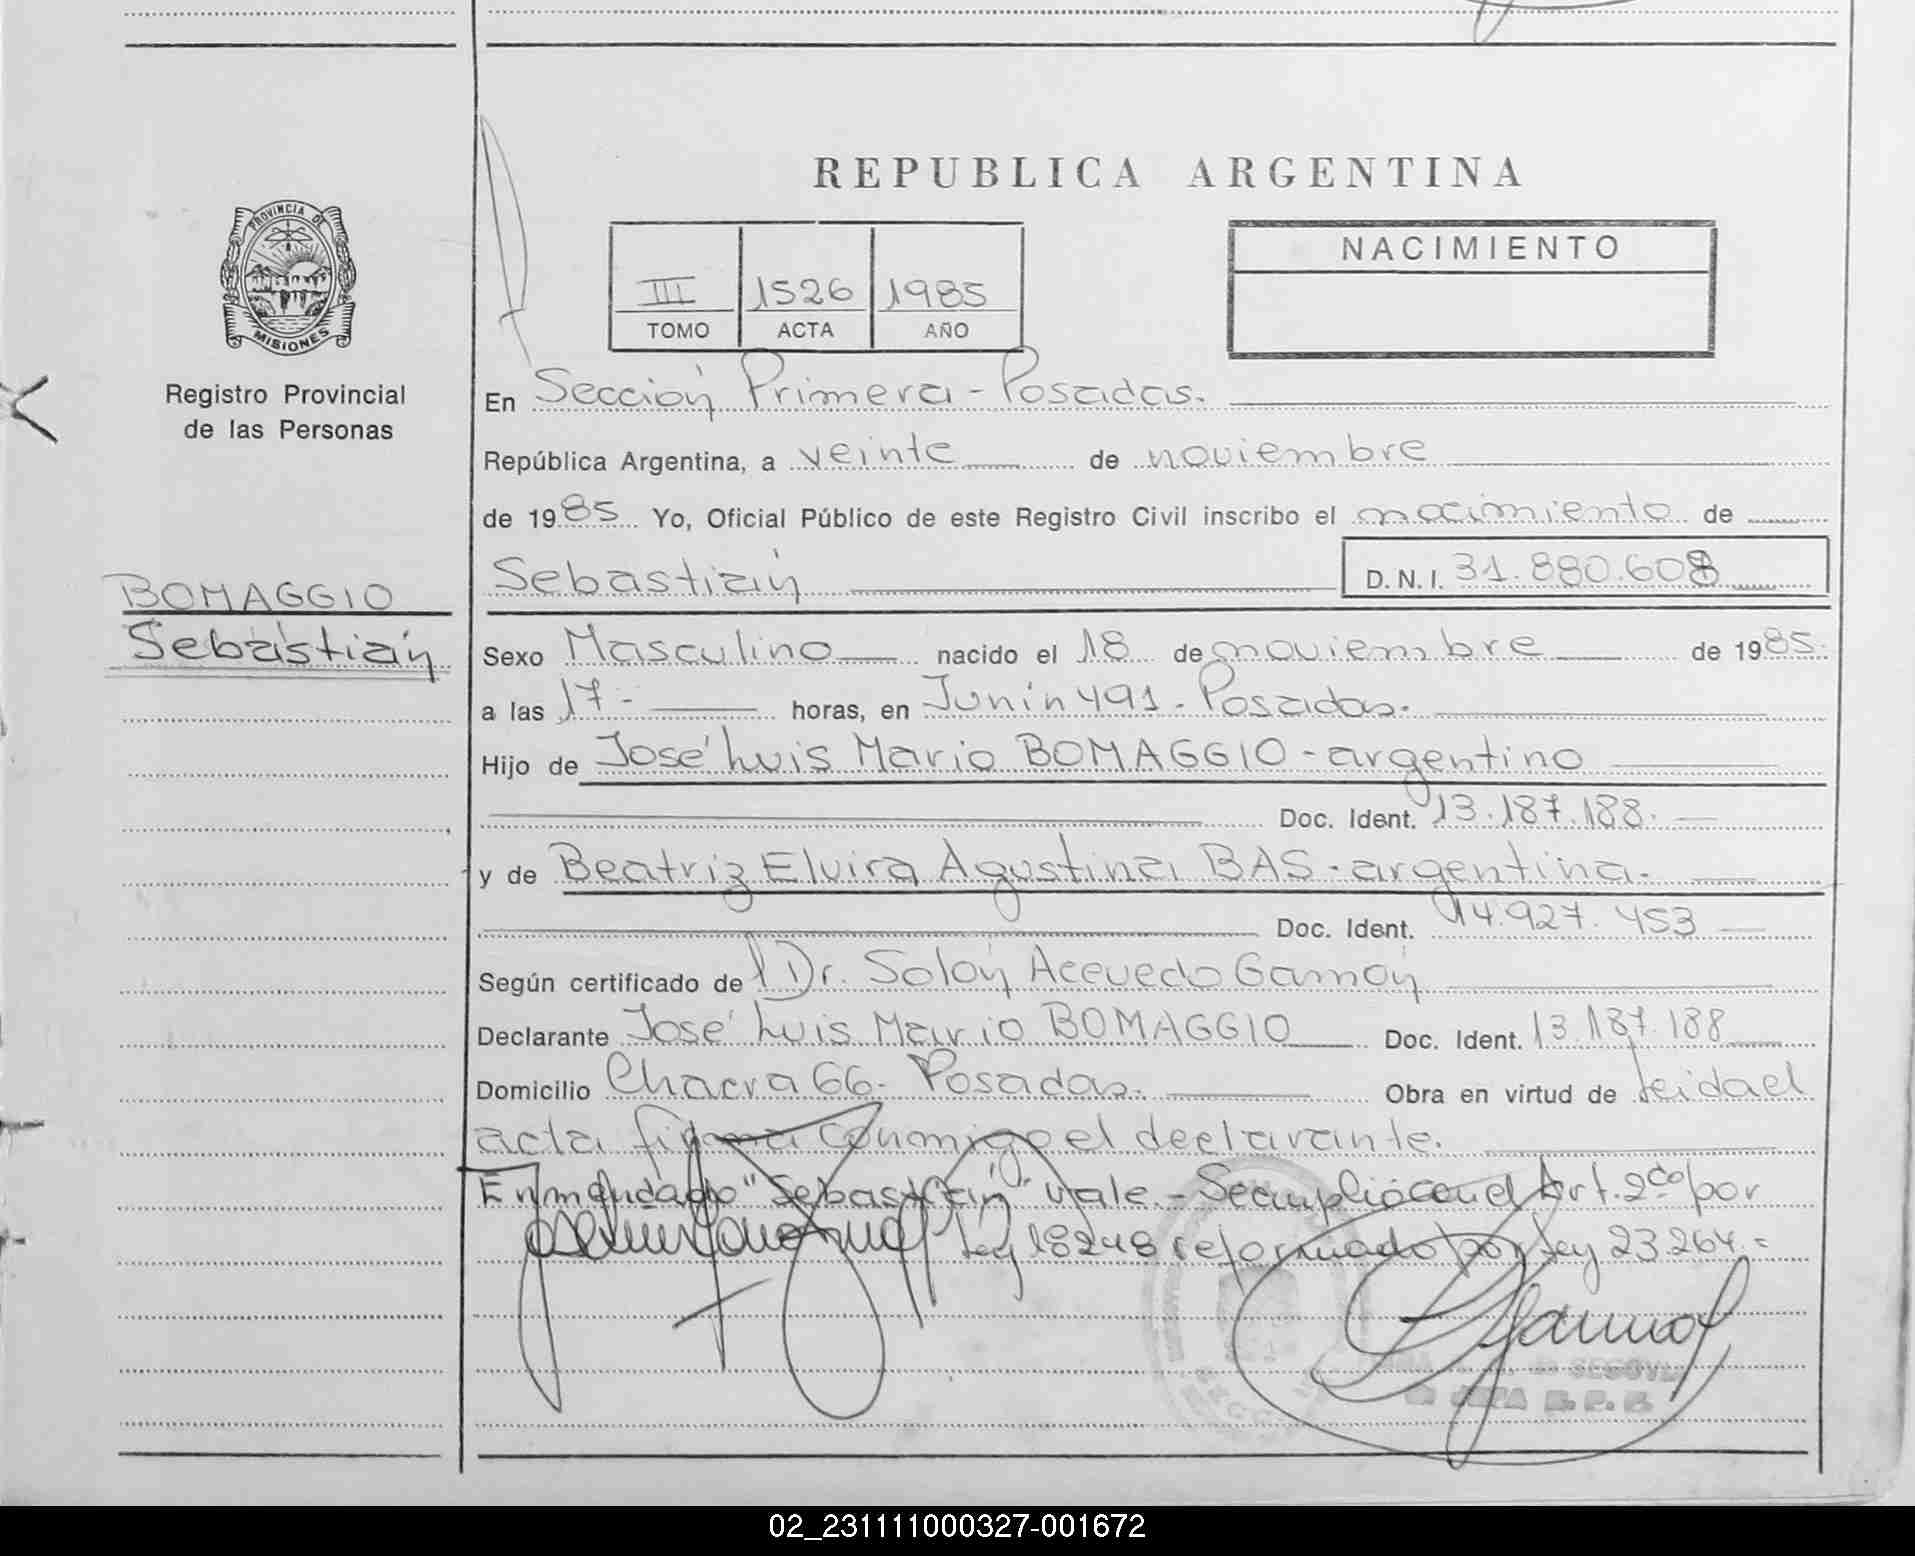 REPUBLICA ARGENTINA
PROVINCIA DE
MISIONES
Registro Provincial
de las Personas
BOMAGGIO
Sebastián
III 1526 1985
TOMO ACTA AÑO
NACIMIENTO
En Sección Primera - Posadas.
República Argentina, a veinte de noviembre
de 1985 Yo, Oficial Público de este Registro Civil inscribo el nacimiento de
Sebastián D.N.I. 31.880.608
Sexo Masculino nacido el 18 de noviembre de 1985.
a las 17- horas, en Junín 491. Posadas.
Hijo de José Luis Mario BOMAGGIO - argentino
Doc. Ident. 13.187.188.
y de Beatriz Elvira Agustina BAS - argentina.
Doc. Ident. 14.927.453
Según certificado de Dr. Solón Acevedo Gamón
Declarante José Luis Mario BOMAGGIO Doc. Ident. 13.187.188
Domicilio Chacra 66. Posadas. Obra en virtud de Leída el
acta firma conmigo el declarante.
Enmendado "Sebastián" vale.- Se cumplió con el Art. 2do por
Ley 18248 reformado por Ley 23.264.=
SEGOVIA
02_231111000327-001672